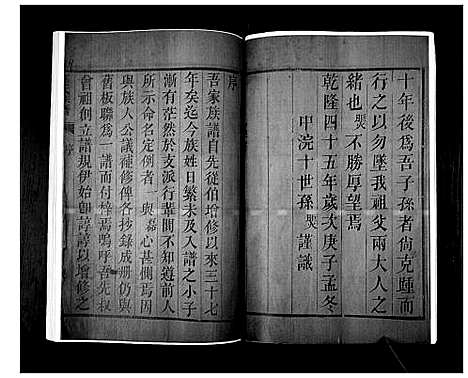 十年後為吾子孫者尚克踵而
行之以勿墜我祖父兩大人之
緒也㷡不勝厚望焉
乾隆四十五年歲次庚子孟冬
甲浣十世孫㷡謹識
序
吾家族譜自先從伯增修以來三十七
年矣迄今族姓日繁未及入譜之小子
漸有茫然於支派行輩間不知遵前人
所示命名定例者 與嘉心甚惻焉因
與族人公議補修俾各抄錄成册仍與
舊板聯為一譜而付梓焉嗚呼吾先叔
曾祖創立譜規伊始卽諄諄以增修之